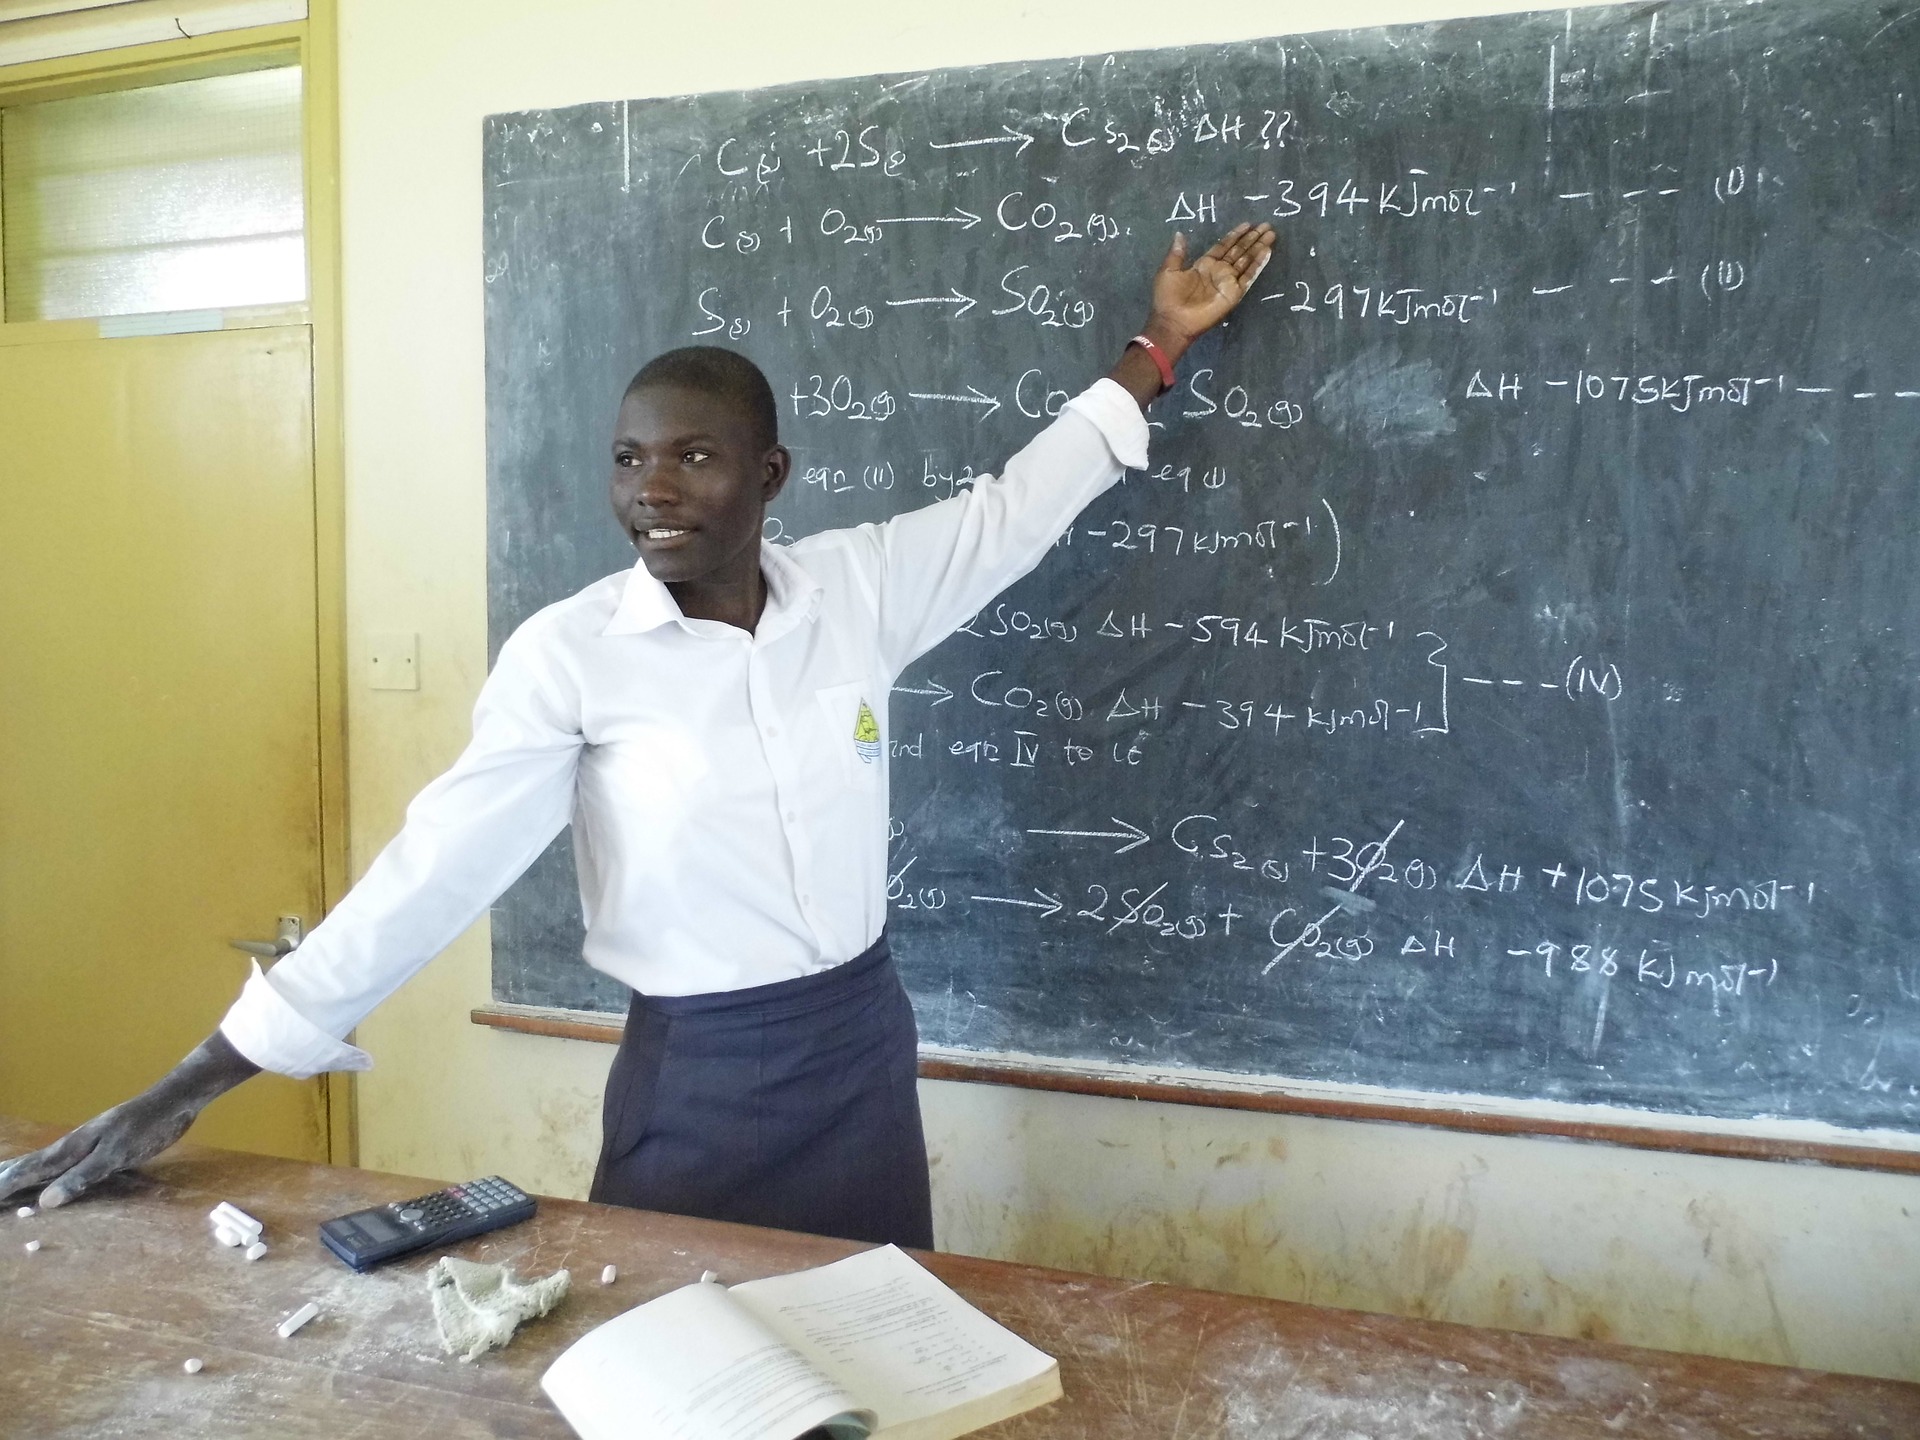 C(s) + 2S(s) → Cs2(s) ΔH ??
C(s) + O2(g) → CO2(g). ΔH -394 kJmol-1 - - - - (I)
S(s) + O2(g) → SO2(g) -297 kJmol-1 - - - (II)
+3O2(g) → Co SO2(g) ΔH -1075 kJmol-1 - - -
eqn (II) by 2 eq
O2 -297 kJmol-1)
2SO2(g) ΔH -594 kJmol-1
→ CO2(g) ΔH -394 kJmol-1 } - - - - (IV)
eqn IV to
→ Cs2(s) + 3O2(g) ΔH +1075 kJmol-1
O2(g) → 2SO2(g) + CO2(g) ΔH -988 kJmol-1